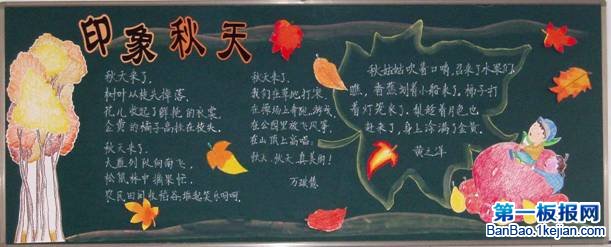 印象秋天
秋天来了,
树叶从枝头掉落,
花儿收起了鲜艳的衣裳,
金黄的橘子高挂在枝头。
秋天来了,
大雁列队向南飞,
松鼠林中摘果忙,
农民田间收稻谷堆起笑呵呵。
秋天来了,
我们在草地打滚,
在操场上奔跑、游戏,
在公园里放飞风筝,
在山顶上高唱:
秋天,秋天真美丽!
万琰慧
秋姑姑吹着口哨,召来了水果们
瞧,香蕉划着小船来了,柿子打
着灯笼来了,梨踏着月色也
赶来了,身上涂满了金黄。
黄之洋
第一板报网
BanBao.1kejian.com